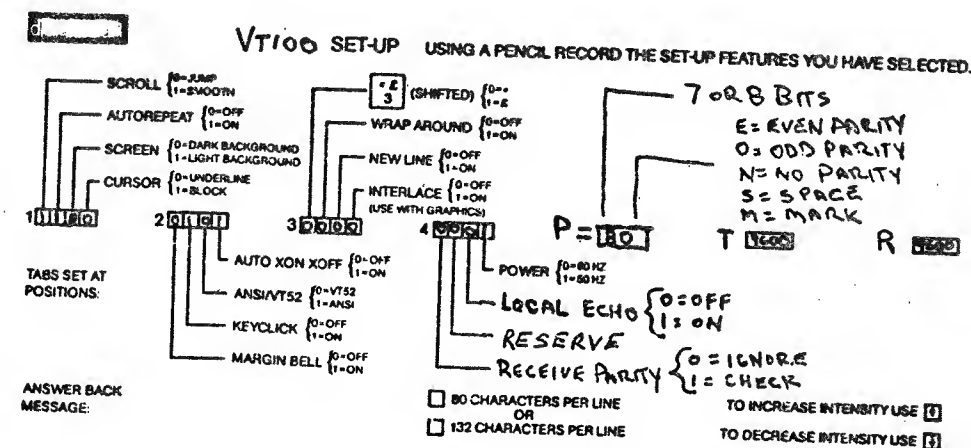 VT100 SET-UP USING A PENCIL RECORD THE SET-UP FEATURES YOU HAVE SELECTED.
SCROLL {0=JUMP
1=SMOOTH
AUTOREPEAT {0=OFF
1=ON
SCREEN {0=DARK BACKGROUND
1=LIGHT BACKGROUND
CURSOR {0=UNDERLINE
1=BLOCK
3 (SHIFTED) {0=#
1=£
WRAP AROUND {0=OFF
1=ON
NEW LINE {0=OFF
1=ON
INTERLACE {0=OFF
1=ON
(USE WITH GRAPHICS)
7 OR 8 BITS
E = EVEN PARITY
O = ODD PARITY
N = NO PARITY
S = SPACE
M = MARK
1
2 0101
3 0000
4
P =
T 9600
R 9600
TABS SET AT
POSITIONS:
AUTO XON XOFF {0=OFF
1=ON
ANSI/VT52 {0=VT52
1=ANSI
KEYCLICK {0=OFF
1=ON
MARGIN BELL {0=OFF
1=ON
POWER {0=60 HZ
1=50 HZ
LOCAL ECHO {0=OFF
1=ON
RESERVE
RECEIVE PARITY {0 = IGNORE
1 = CHECK
ANSWER BACK
MESSAGE:
80 CHARACTERS PER LINE
OR
132 CHARACTERS PER LINE
TO INCREASE INTENSITY USE ↑
TO DECREASE INTENSITY USE ↓